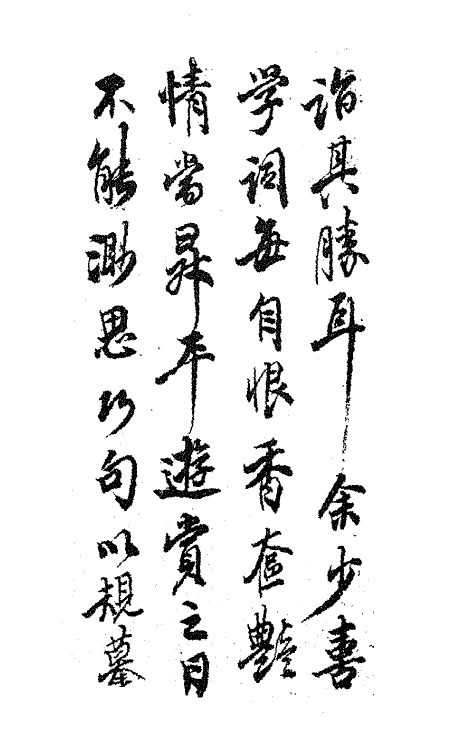 詣其勝耳余少喜
学词每自恨香奩艷
情當昇平遊賞之日
不能渺思巧句以規摹